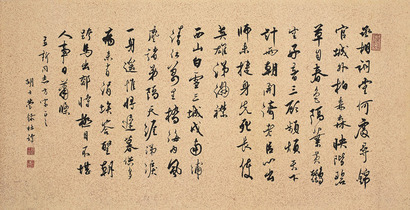 丞相祠堂何處尋錦
官城外柏森森映階碧
草自春色隔葉黃鸝
空好音三顧頻煩天下
計兩朝開濟老臣心出
師未捷身先死長使
英雄淚滿襟
西山白雪三城戍南浦
清江萬里橋海內風
塵諸弟隔天涯涕淚
一身遙惟將遲暮供多
病未有涓埃答聖朝
跨馬出郊時極目不堪
人事日蕭條
同志方家正之